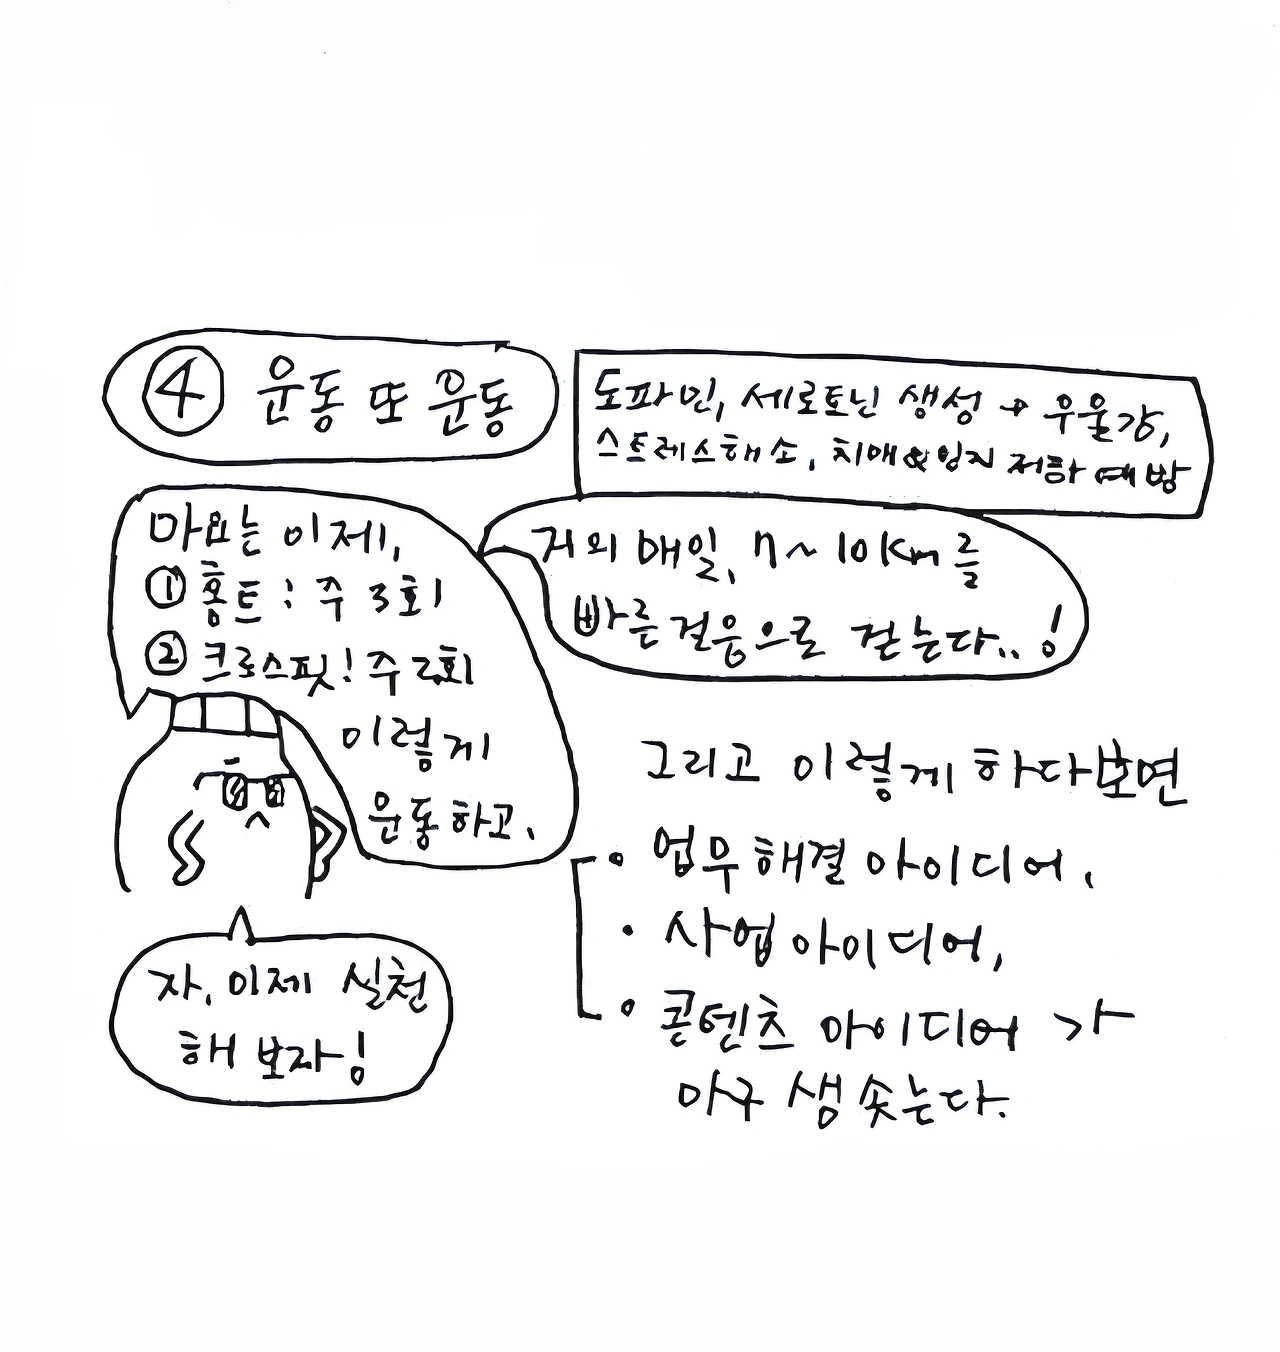 ④ 운동 또 운동
도파민, 세로토닌 생성 → 우울감,
스트레스해소, 치매&인지 저하 예방
마요는 이제,
① 홈트: 주 3회
② 크로스핏! 주 2회
이렇게
운동하고,
거의 매일, 7~10km를
빠른 걸음으로 걷는다..!
자, 이제 실천
해 보자!
그리고 이렇게 하다보면
• 업무해결 아이디어,
• 사업 아이디어,
• 콘텐츠 아이디어 가
마구 샘 솟는다.